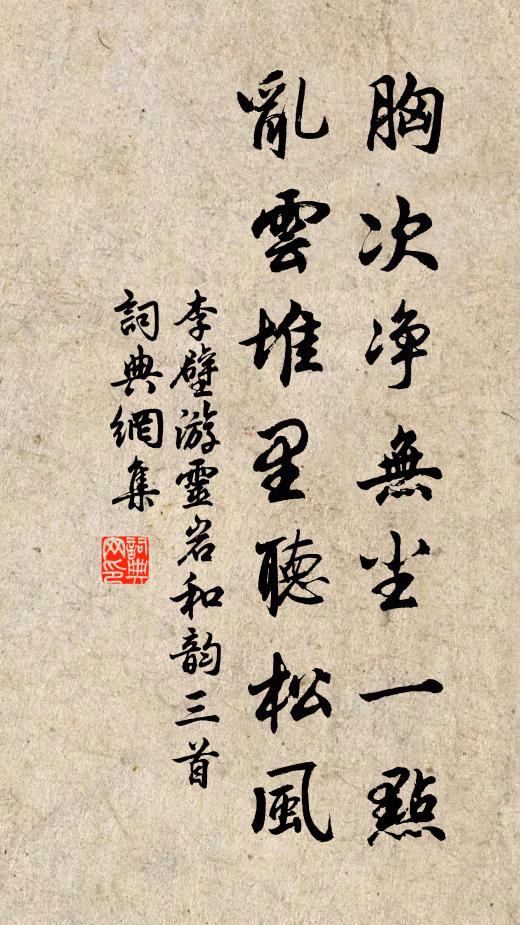 胸次净無尘一點
亂雲堆里聽松風
李壁游靈岩和韵三首
詞典網集
詞典網印